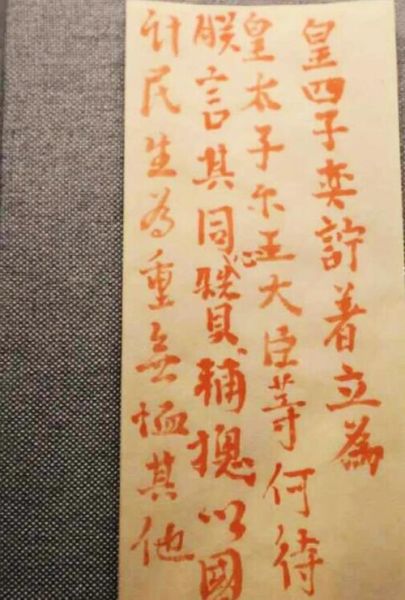 皇四子奕詝著立為
皇太子尔王大臣等何待
朕言其同心贊輔總以國
計民生為重無恤其他